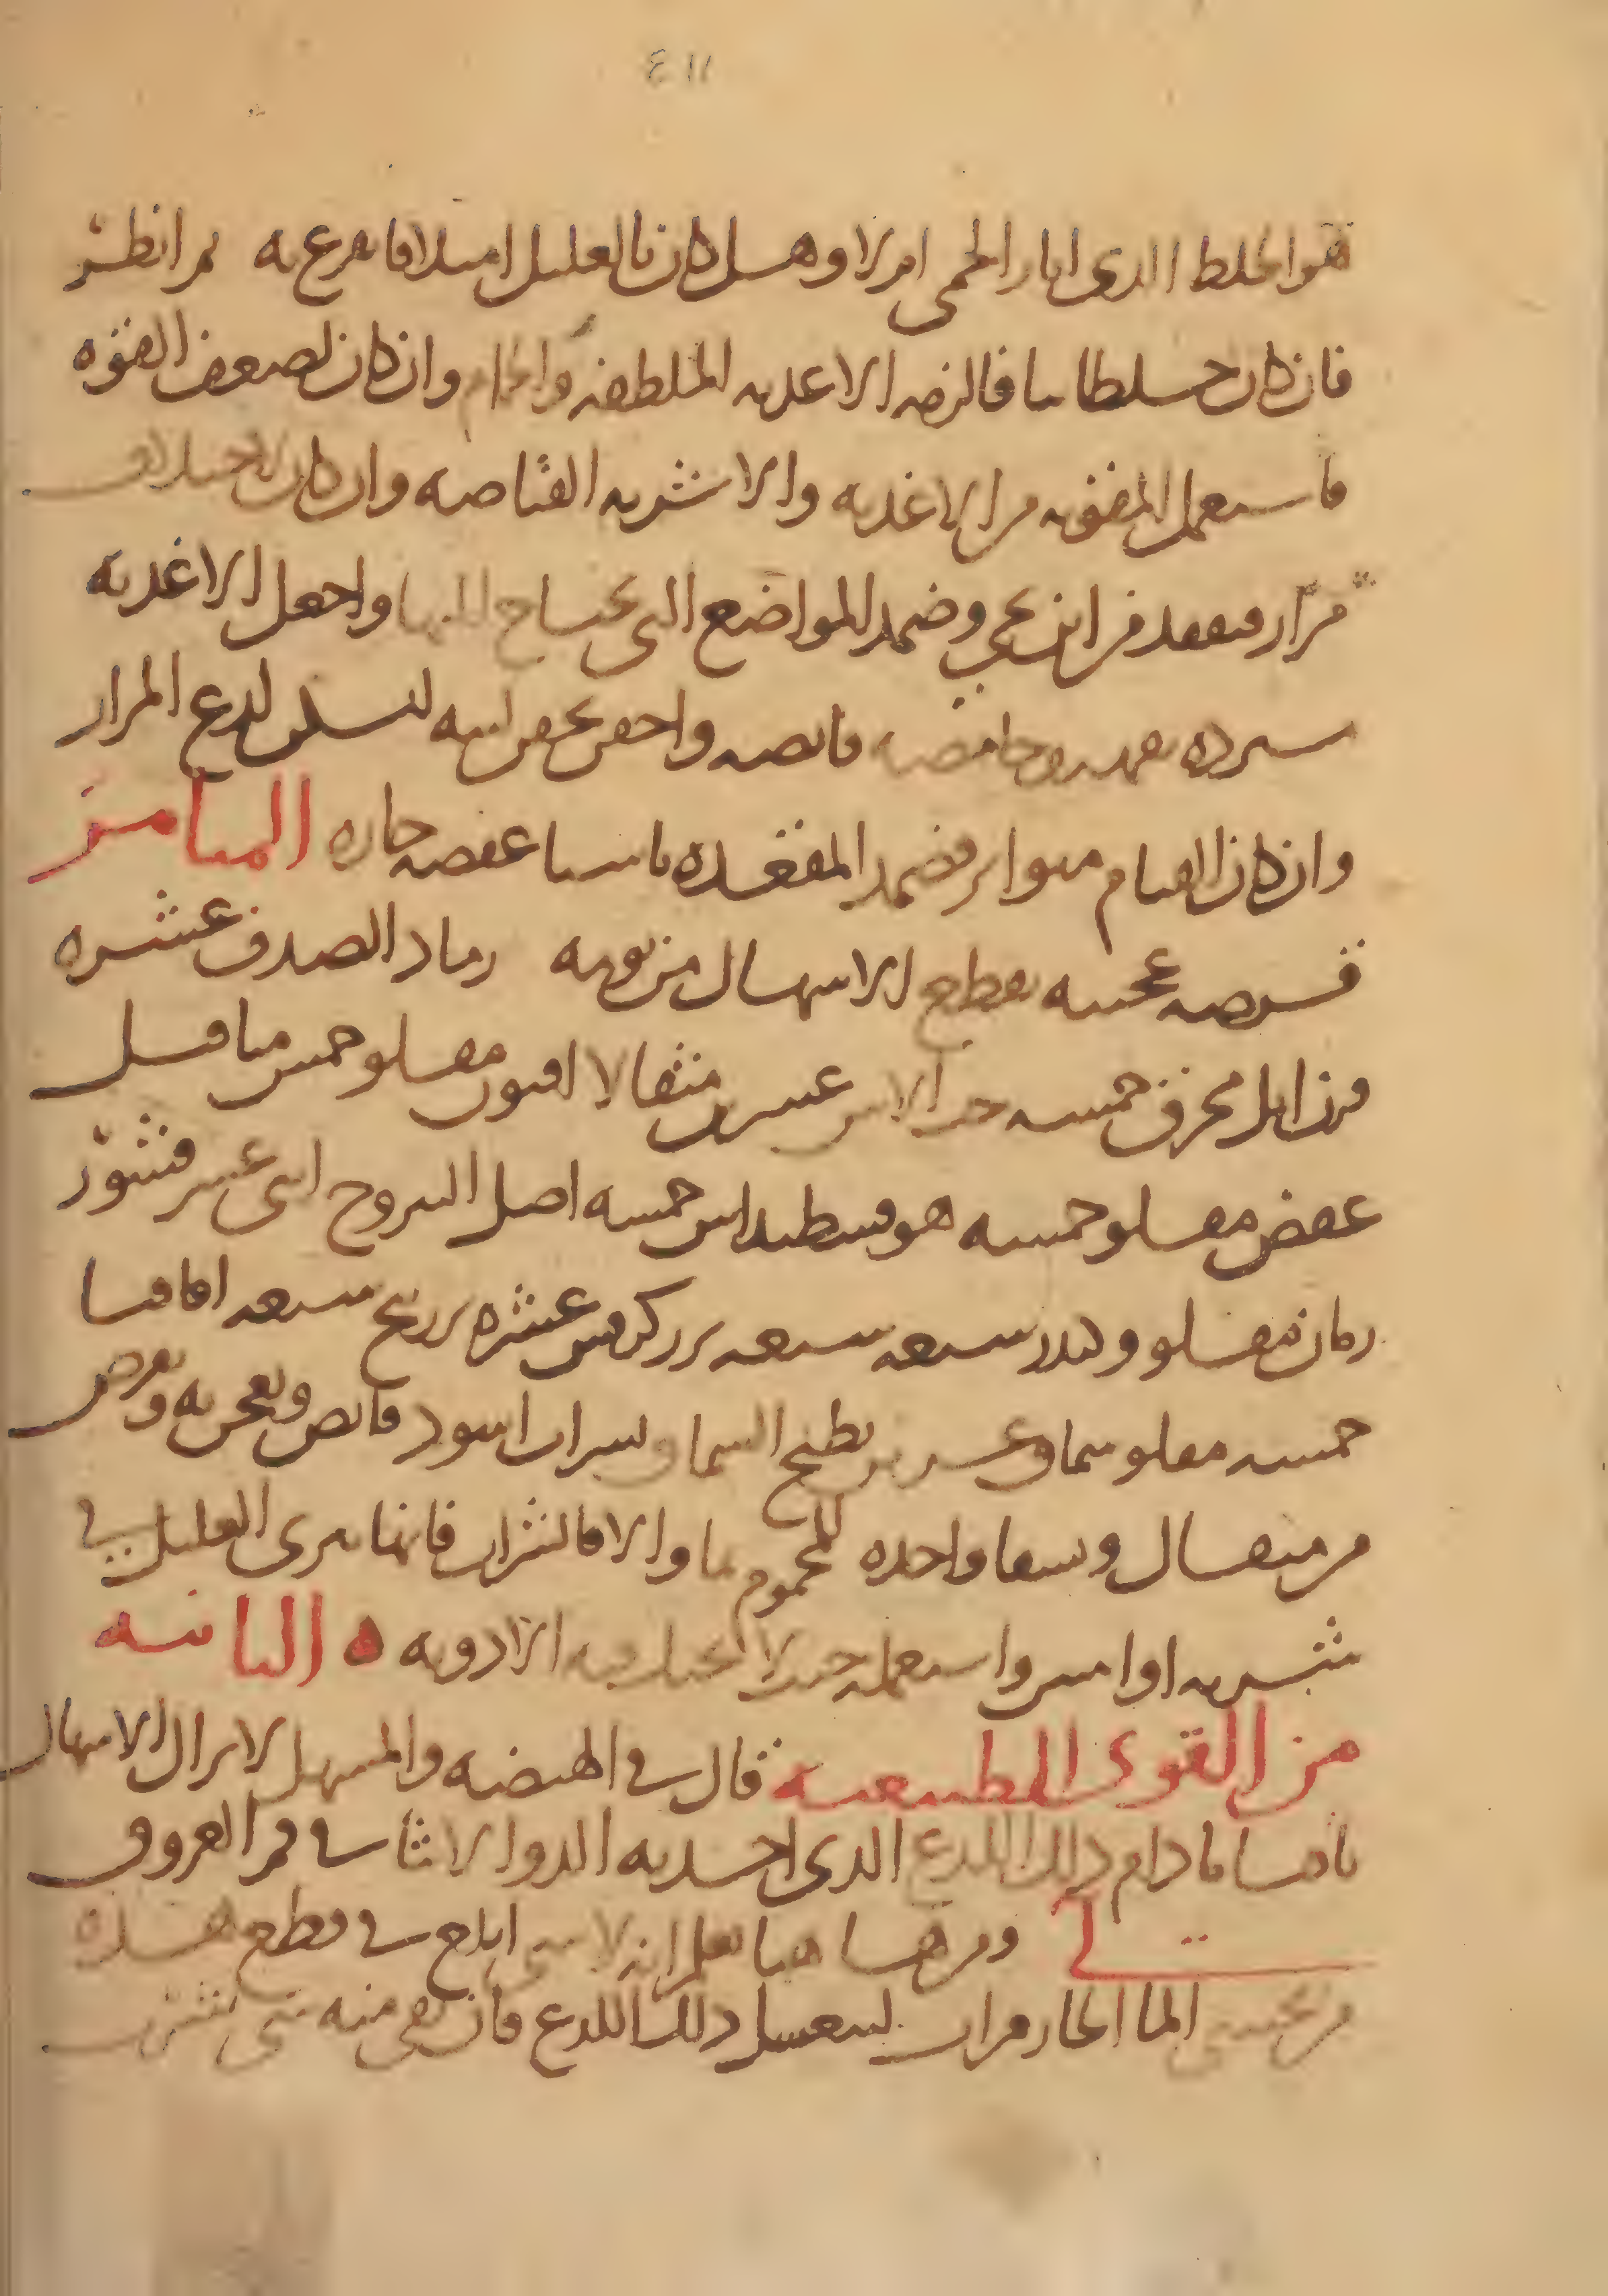 ٤١١
هو الخلط الذي اثار الحمى ام لا وهل كان بالعليل امتلا فافرغ به ثم انظر
فان كان خلطا نيا فالزمه الاغذيه الملطفه والحمام وان كان لضعف القوه
فاستعمل المقويه من الاغذيه والاشربه القابضه وان كان الاختلاف
مرار فتفقد من اين يجي وضمد المواضع التي تحتاج اليها واجعل الاغذيه
مبرده حامضه قابضه واحقن بحقن لينه لتسكن لذع المرار
وان كان القيام متواتر فضمد المقعده باشيا عفصه حاره الميامر
قرصه عجيبه تقطع الاسهال من يومه رماد الصدف عشره
قرن ايل محرق خمسه حب الاس عشرين مثقالا افيون مقلو خمس مثاقيل
عفص مقلو خمسه هوفسطيداس خمسه اصل اليبروح اثني عشر قشور
رمان مقلو وكندر سبعه سبعه بزر كرفس عشره بزر بنج سبعه اقاقيا
خمسه مقلو سماق عشرين يطبخ السماق بشراب اسود قابض ويعجن به ويقرص
من مثقال ويسقا واحده للمحموم بما والا فالشراب فانها تبرى العليل في
شربه او اثنين واستعمله حيث لا الادويه ه الثانيه
من القوى الطبيعيه قال في الهيضه والمسهل لا يزال الاسهال
باقيا ما دام ذلك اللذع الذي احسه الدوا لابثا في فم العروق
لي ومن هاهنا يعلم انه لا شي ابلغ في قطع هذه
من تحسي الما الحار مرات ليغسل ذلك اللذع فان بقي منه شي يشرب